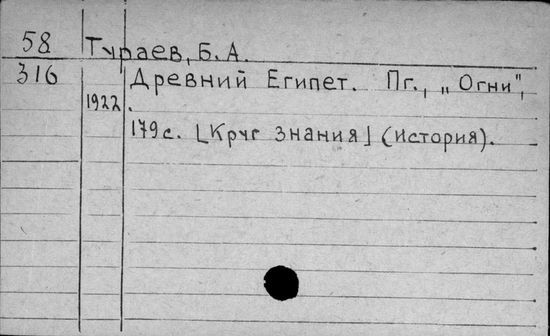 58
Тураев, Б. А.
316
Древний Египет. Пг., „Огни",
1922.
179 с. [Круг знания] (история).